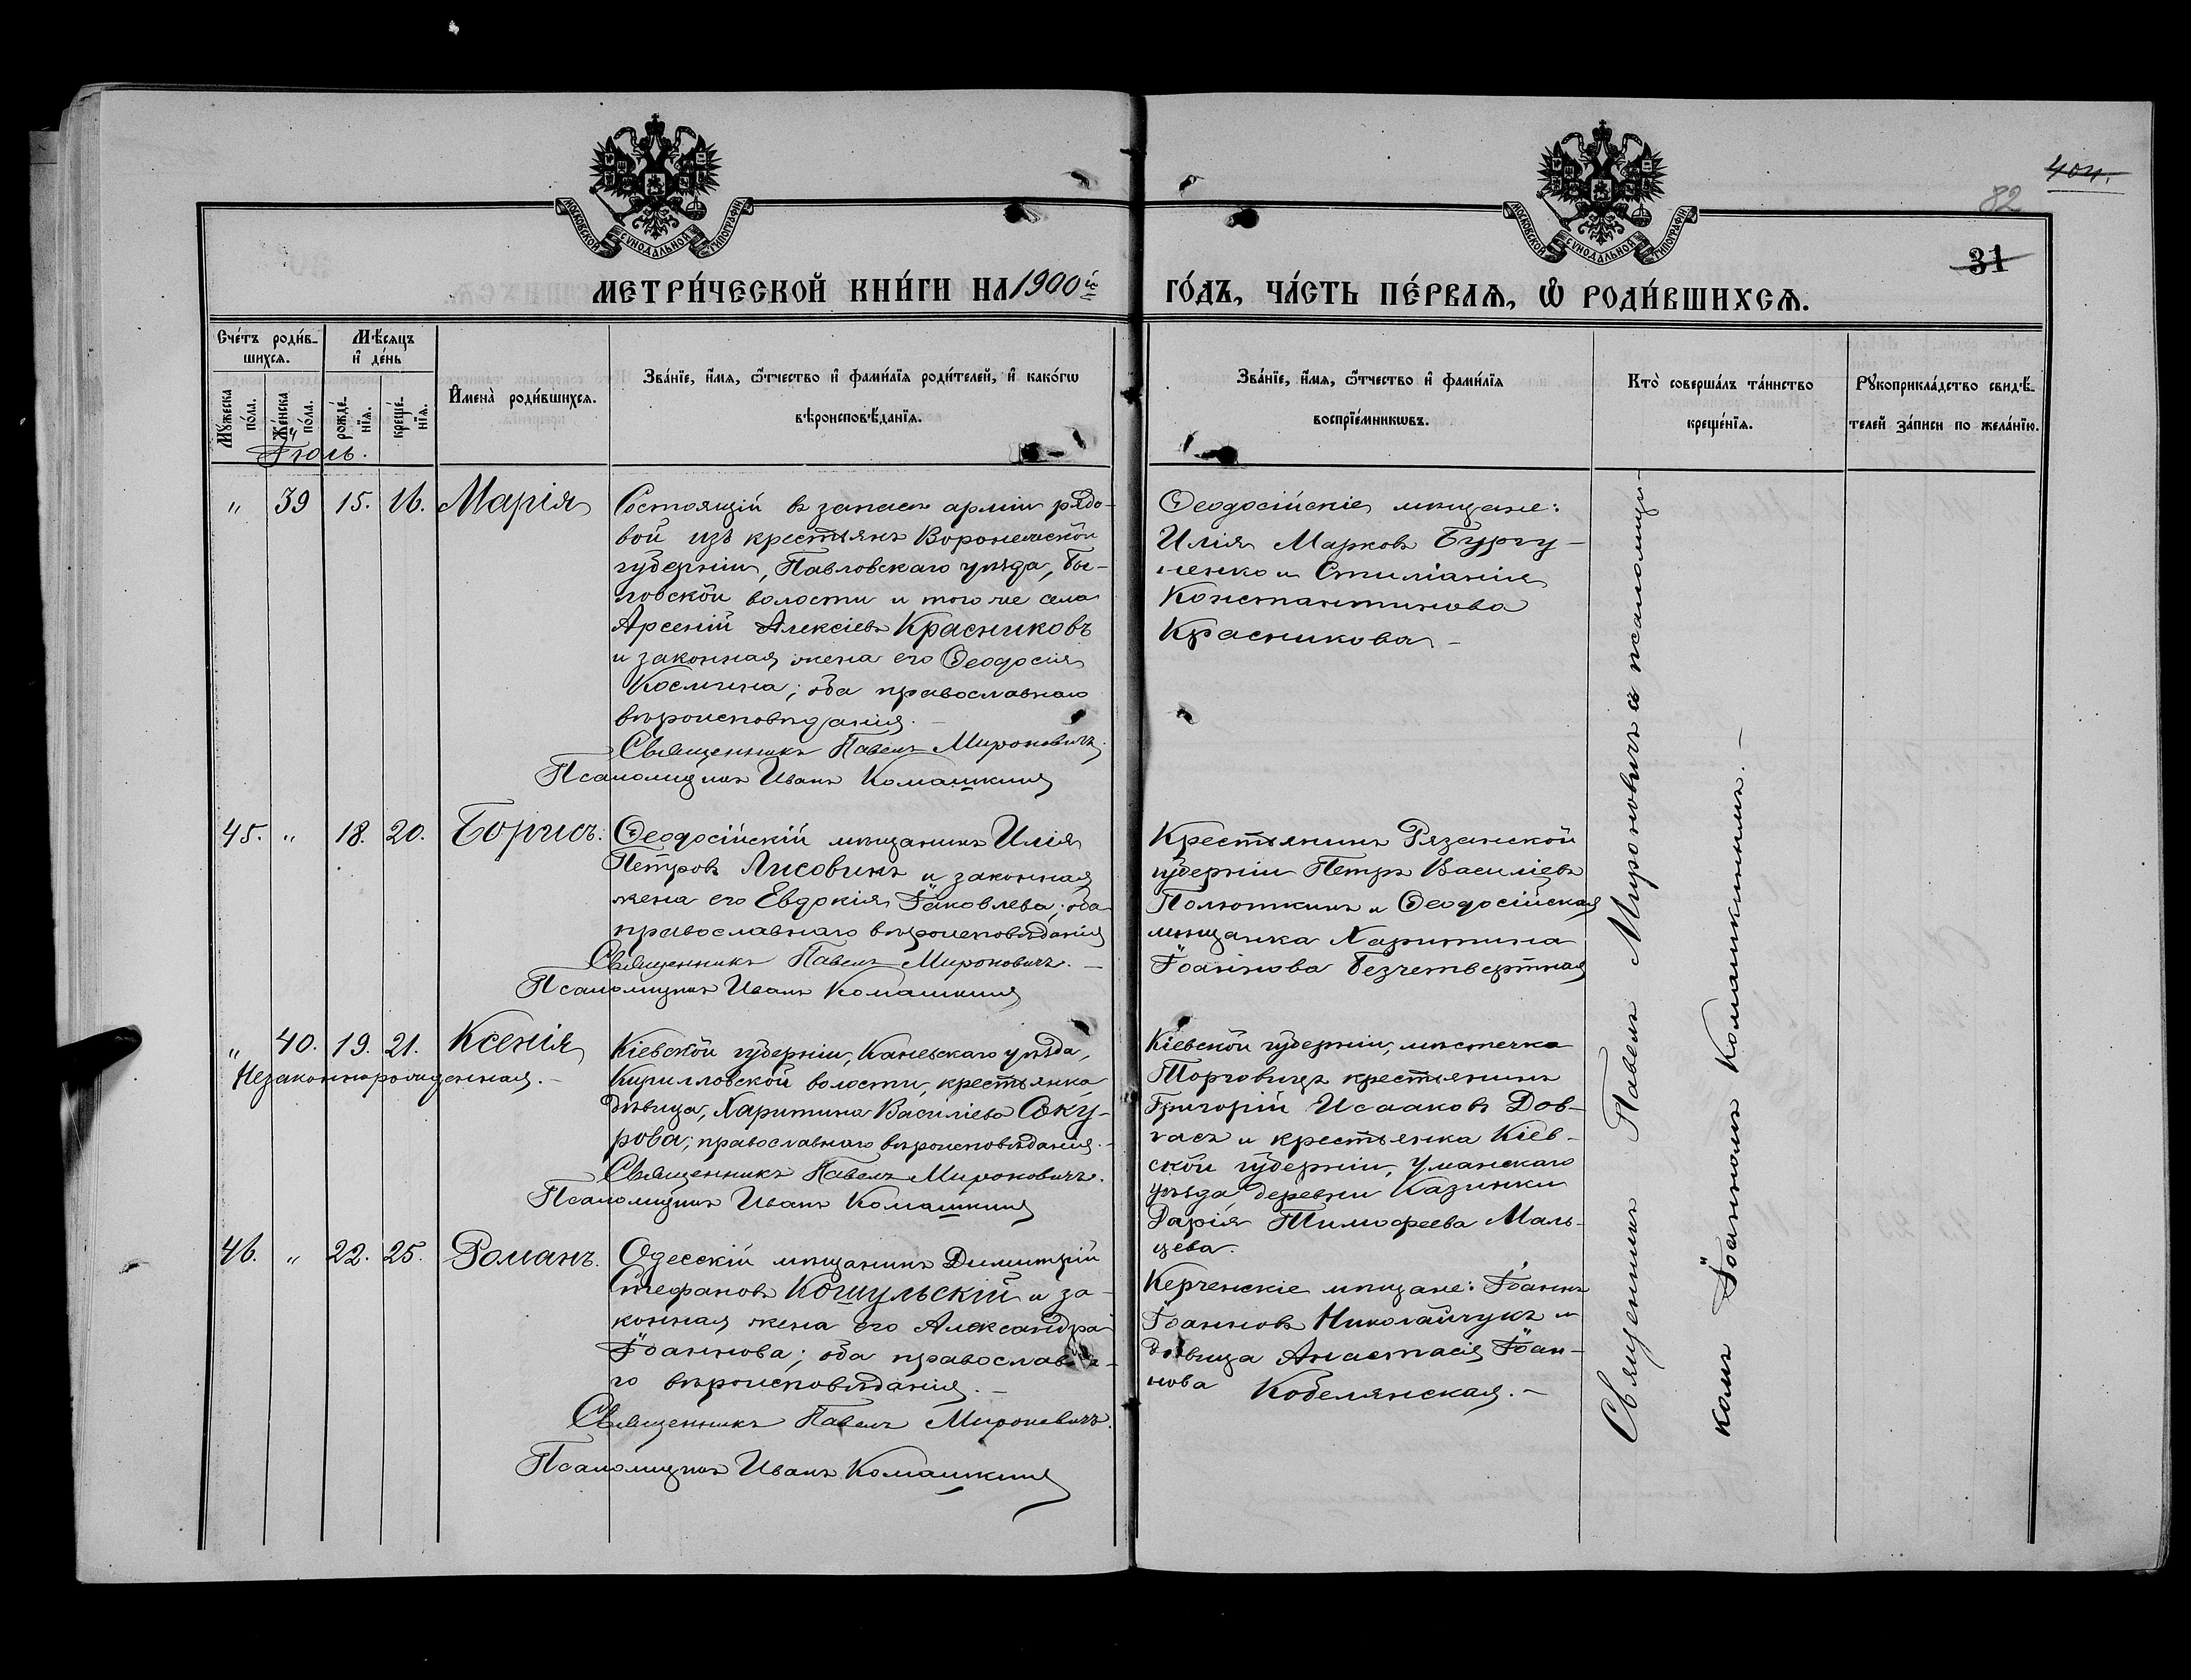 404.
82
31
МОСКОВСКОЙ СѴНОДАЛЬНОЙ ТИПОГРАФІИ
МОСКОВСКОЙ СѴНОДАЛЬНОЙ ТИПОГРАФІИ
МЕТРИ́ЧЕСКОЙ КНИ́ГИ НА 1900й
ГО́ДЪ, ЧА́СТЬ ПЕ́РВАѦ, Ѡ҆ РОДИ́ВШИХСѦ.
Сче́тъ роди́в-
шихсѧ.
Мѣ́сѧцъ
и҆ де́нь
Мꙋ́жеска по́ла.
Же́нска по́ла.
рожде́-
нїѧ.
креще́-
нїѧ.
И҆мена̀ роди́вшихсѧ.
Зва́нїе, и҆́мѧ, ѻ҆́тчество и҆ фами́лїѧ роди́телей, и҆ како́гѡ
вѣроисповѣ́данїѧ.
Зва́нїе, и҆́мѧ, ѻ҆́тчество и҆ фами́лїѧ
воспрїе́мникѡвъ.
Кто̀ соверша́лъ та́инство
креще́нїѧ.
Рꙋкоприкла́дство свидѣ́-
телей за́писи по жела́нїю.
Іюль.
" 39 15. 16. Марія
Состоящій въ запасѣ арміи рядо-
вой изъ крестьянъ Воронежской
губерніи, Павловскаго уѣзда,
ловской волости и того же села
Арсеній Алексіевъ Красниковъ
и законная жена его Ѳеодосія
Космина; оба православнаго
вѣроисповѣданія.-
Священникъ Павелъ Мироновичъ.
Псаломщикъ Иванъ Комашкинъ
Ѳеодосійскіе мѣщане:
Илія Марковъ Бургу-
ленко и Стиліанія
Константинова
Красникова -
45. " 18. 20. Борисъ.
Ѳеодосійскій мѣщанинъ Илія
Петровъ Лисовинъ и законная
жена его Евдокія Іаковлева; оба
православнаго вѣроисповѣданія
Священникъ Павелъ Мироновичъ. -
Псаломщикъ Иванъ Комашкинъ
Крестьянинъ Рязанской
губерніи Петръ Василіевъ
Полюткинъ и Ѳеодосійская
мѣщанка Харитина
Іоаннова Безчетвертная
" 40. 19. 21. Ксенія
Незаконнорожденная.-
Кіевской губерніи, Каневскаго уѣзда,
Кирилловской волости, крестьянка
дѣвица, Харитина Василіева Соку-
рова; православнаго вѣроисповѣданія.-
Священникъ Павелъ Мироновичъ.
Псаломщикъ Иванъ Комашкинъ
Кіевской губерніи, мѣстечка
Торговицъ крестьянинъ
Григорій Исааковъ Дов-
гасъ и крестьянка Кіев-
ской губерніи, Уманскаго
уѣзда деревни Казинки
Дарія Тимофеева Маль-
цева.
46. " 22. 25. Романъ.
Одесскій мѣщанинъ Димитрій
Стефановъ Кошульскій и за-
конная жена его Александра
Іоаннова; оба православна-
го вѣроисповѣданія. -
Священникъ Павелъ Мироновичъ.
Псаломщикъ Иванъ Комашкинъ
Керченскіе мѣщане: Іоаннъ
Іоанновъ Николайчукъ и
дѣвица Анастасія Іоан-
нова Кобелянская. -
Священникъ Павелъ Мироновичъ съ псаломщи-
комъ Іоанномъ Комашкинымъ. -